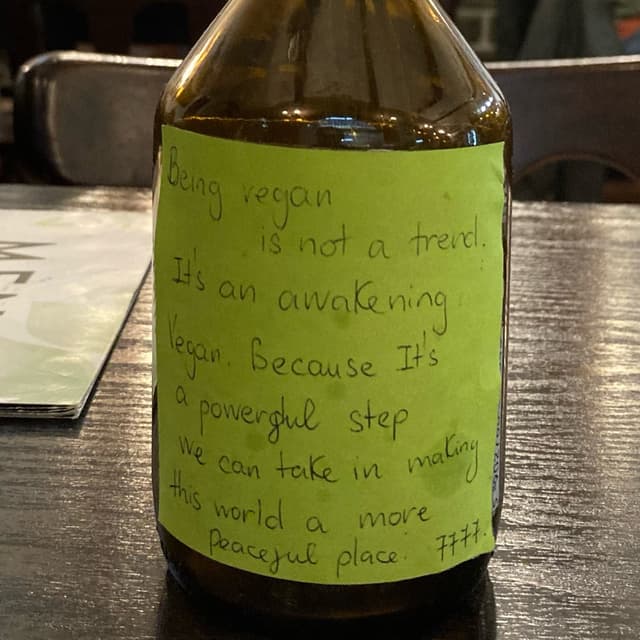 Being vegan
is not a trend.
It's an awakening
Vegan. Because It's
a powerful step
we can take in making
this world a more
peaceful place. 7777.
MEN